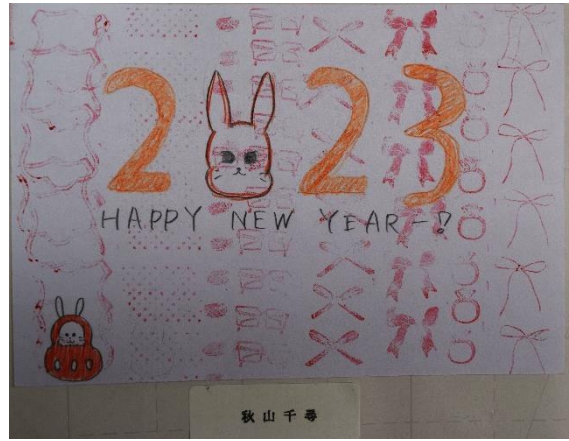 2023
HAPPY NEW YEAR-!?
秋山千尋